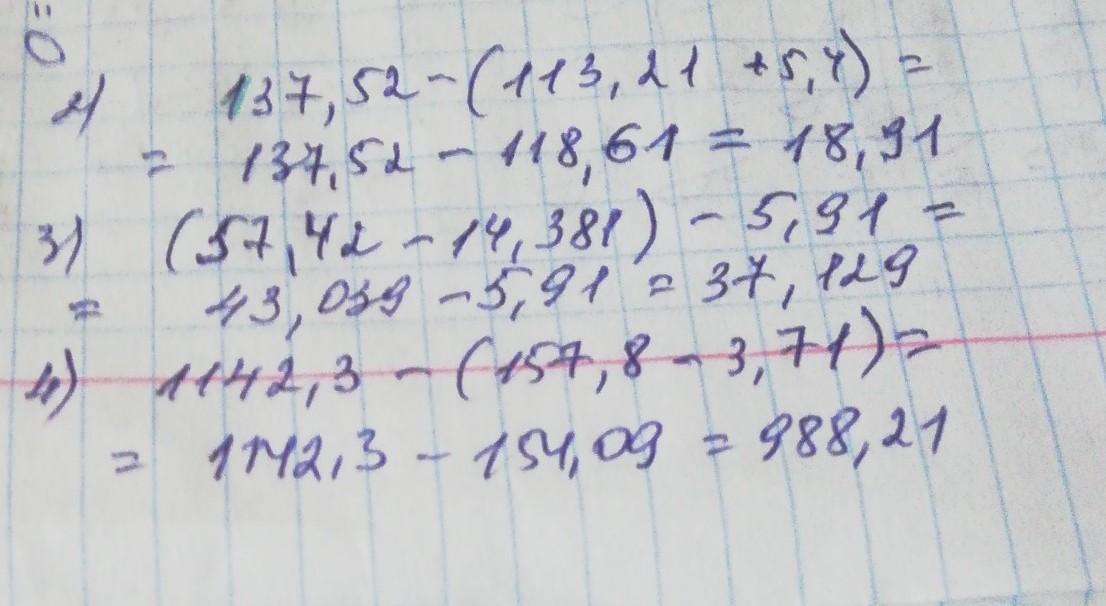 2) 137,52 - (113,21 + 5,4) =
= 137,52 - 118,61 = 18,91
3) (57,42 - 14,381) - 5,91 =
= 43,039 - 5,91 = 37,129
4) 1142,3 - (157,8 - 3,71) =
= 1142,3 - 154,09 = 988,21